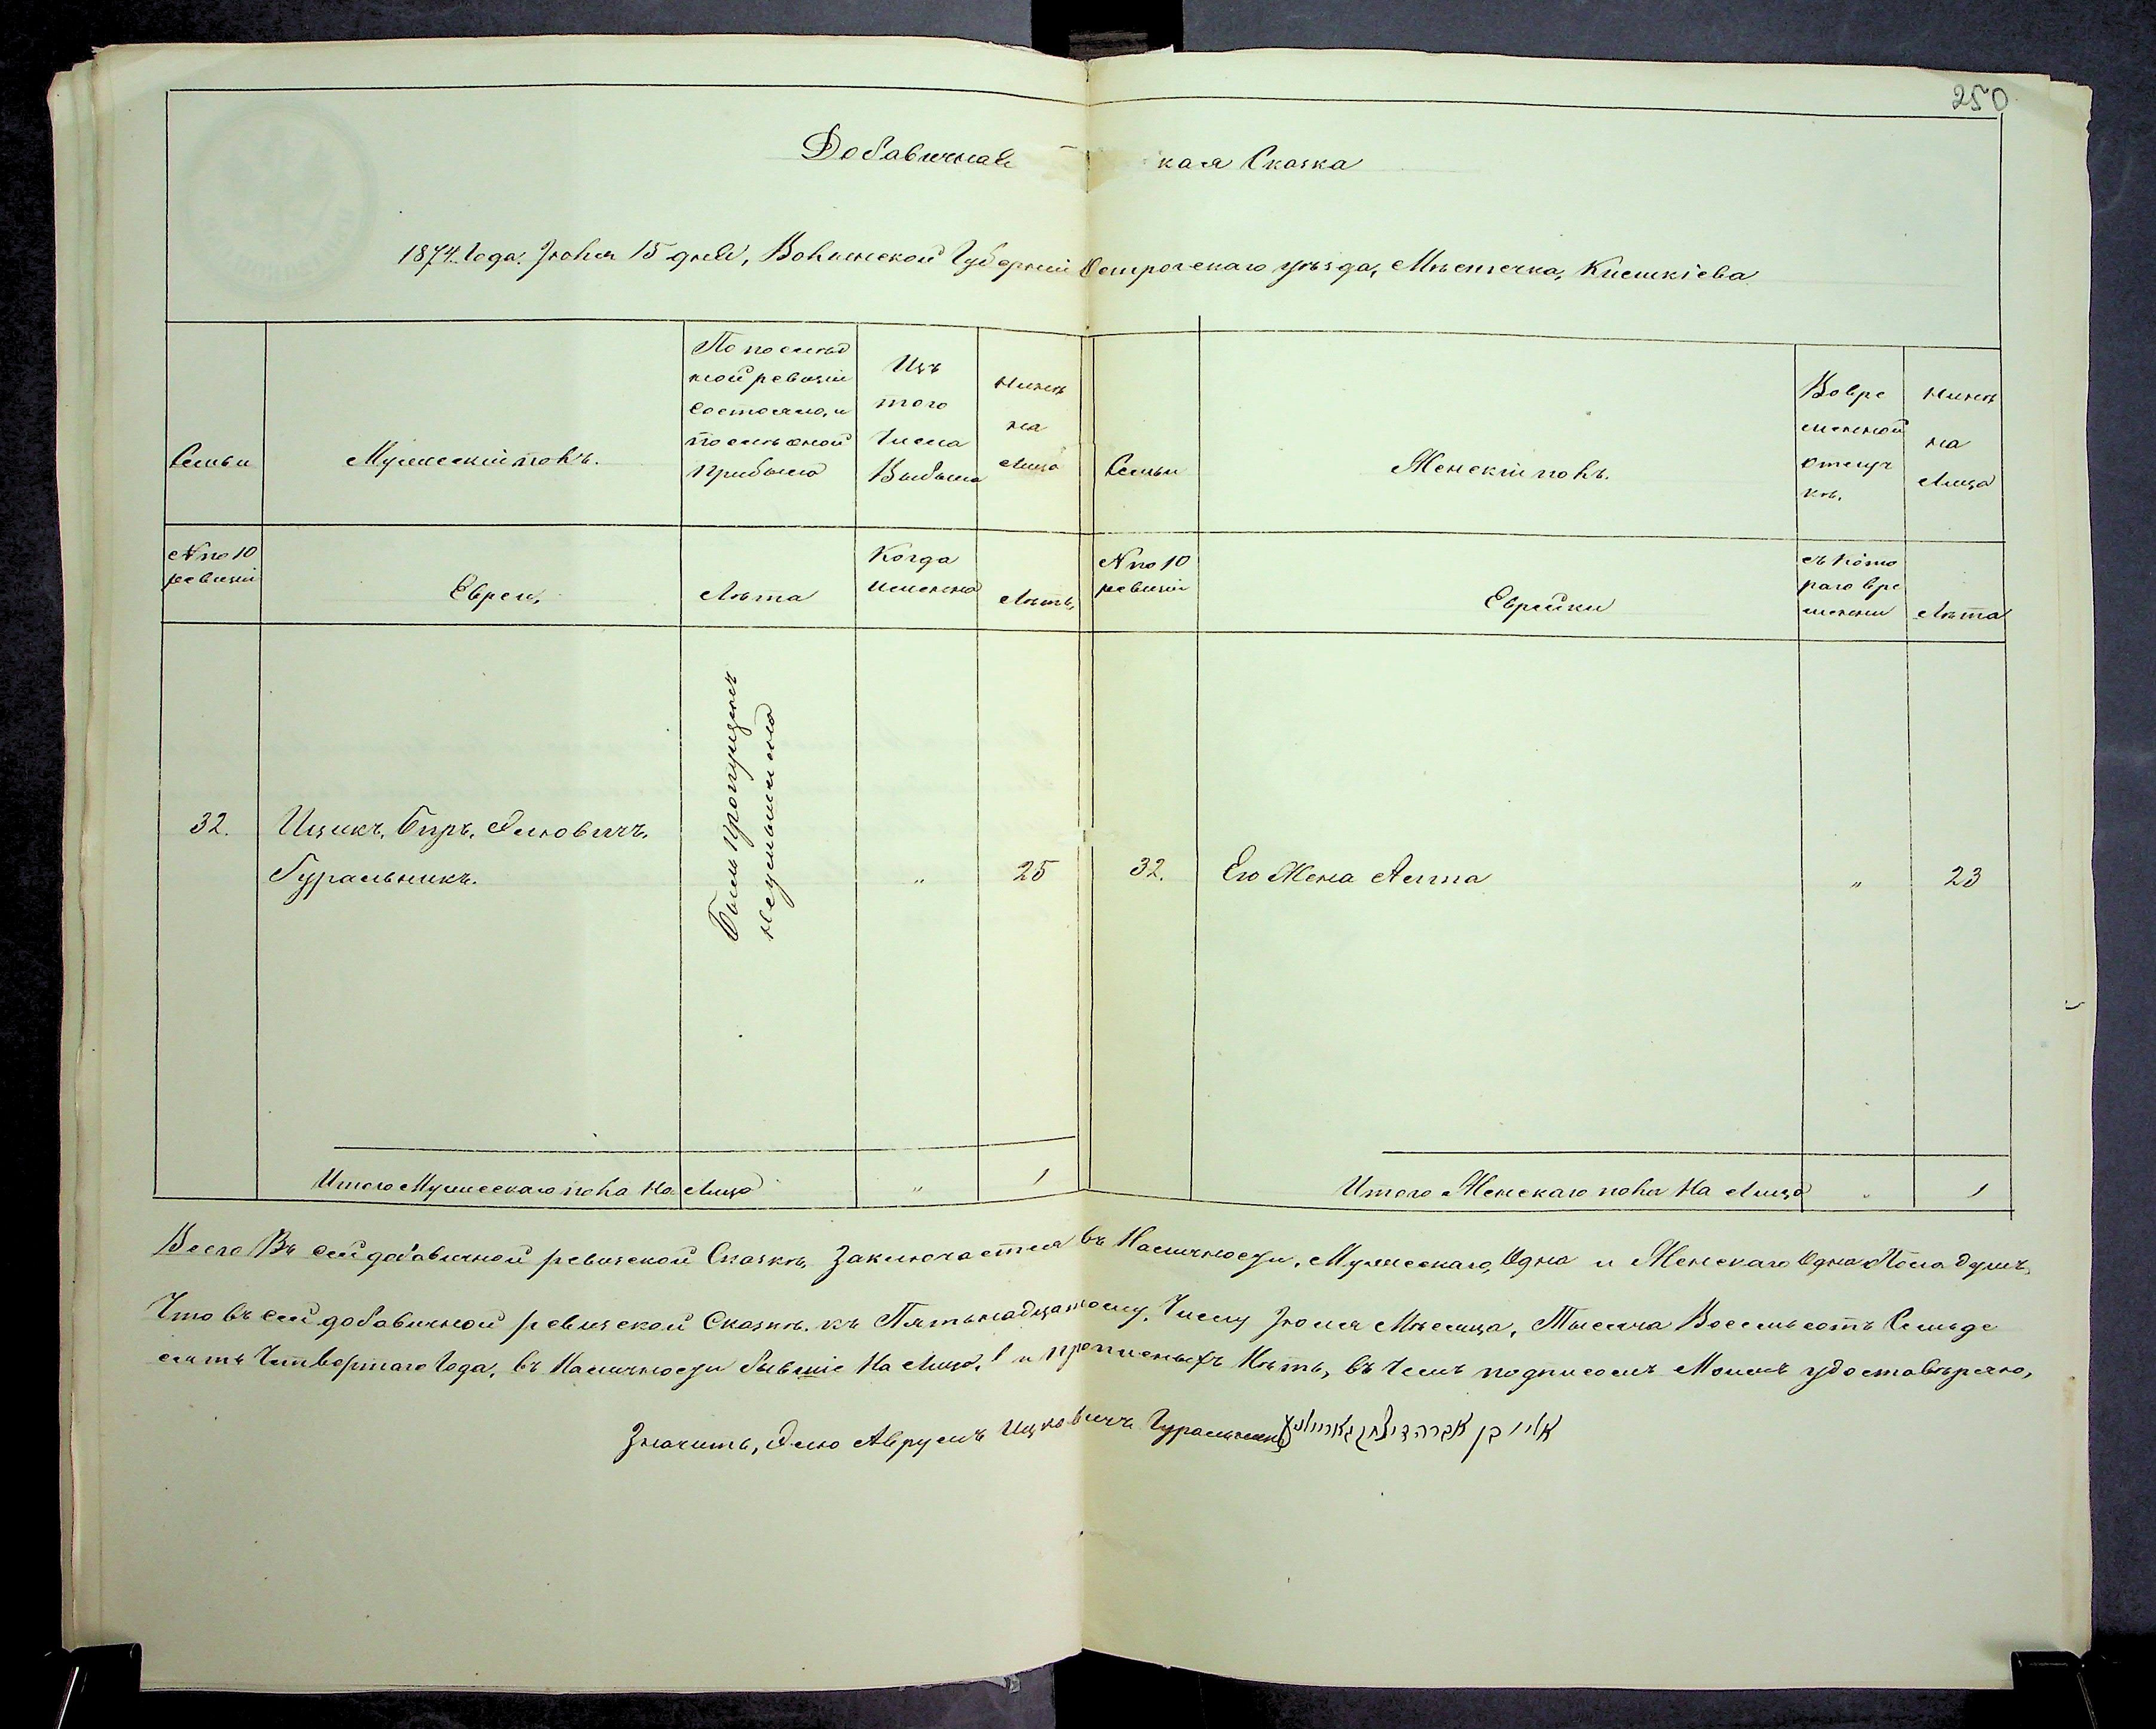 250
Добавичная кая Сказка
1874. Года. Іюня 15 дня, Волынской Губерніи Острогскаго уѣзда, Мѣстечка, Кнешкіева
Семьи
Мужескій полъ.
По послѣд
ней ревизіи
состояло, и
послѣ оной
прибыло
Изъ
того
Числа
Выбыло
Нинѣ
на
лицо
Семьи
Женскій полъ.
Во вре
менной
отлуч
кѣ.
Нинѣ
на
Лицо
№ по 10
ревизіи
Евреи,
Лѣта
Когда
именно
Лѣтъ,
№ по 10
ревизіи
Еврейки
съ кото
раго вре
мении
Лѣта
32.
Ицикъ, Беръ, Эліовичъ,
Гуральникъ.
Былъ пропущенъ
неумышленно
"
25
32.
Его Жена
"
23
Итого Мужескаго пола На Лицо
"
1
Итого Женскаго пола На Лицо
1
Всего Въ сей добавичной ревизской Сказкѣ, Заключается въ Наличности, Мужескаго, Одна и Женскаго Одна Пола душъ,
Что въ сей добавичной ревизской Сказкѣ. къ Пятьнадцатому, Числу Іюля Мѣсяца, Тысяча Восемьсотъ Семьде
сятъ Четвертаго Года, въ Наличности бывшіе На Лицо, и прописныхъ Нѣтъ, въ Чемъ подписомъ Моимъ удостовѣряю,
Значитъ, Эліо Аврумъ Ицковичъ Гуральникъ אליי בן אברהם